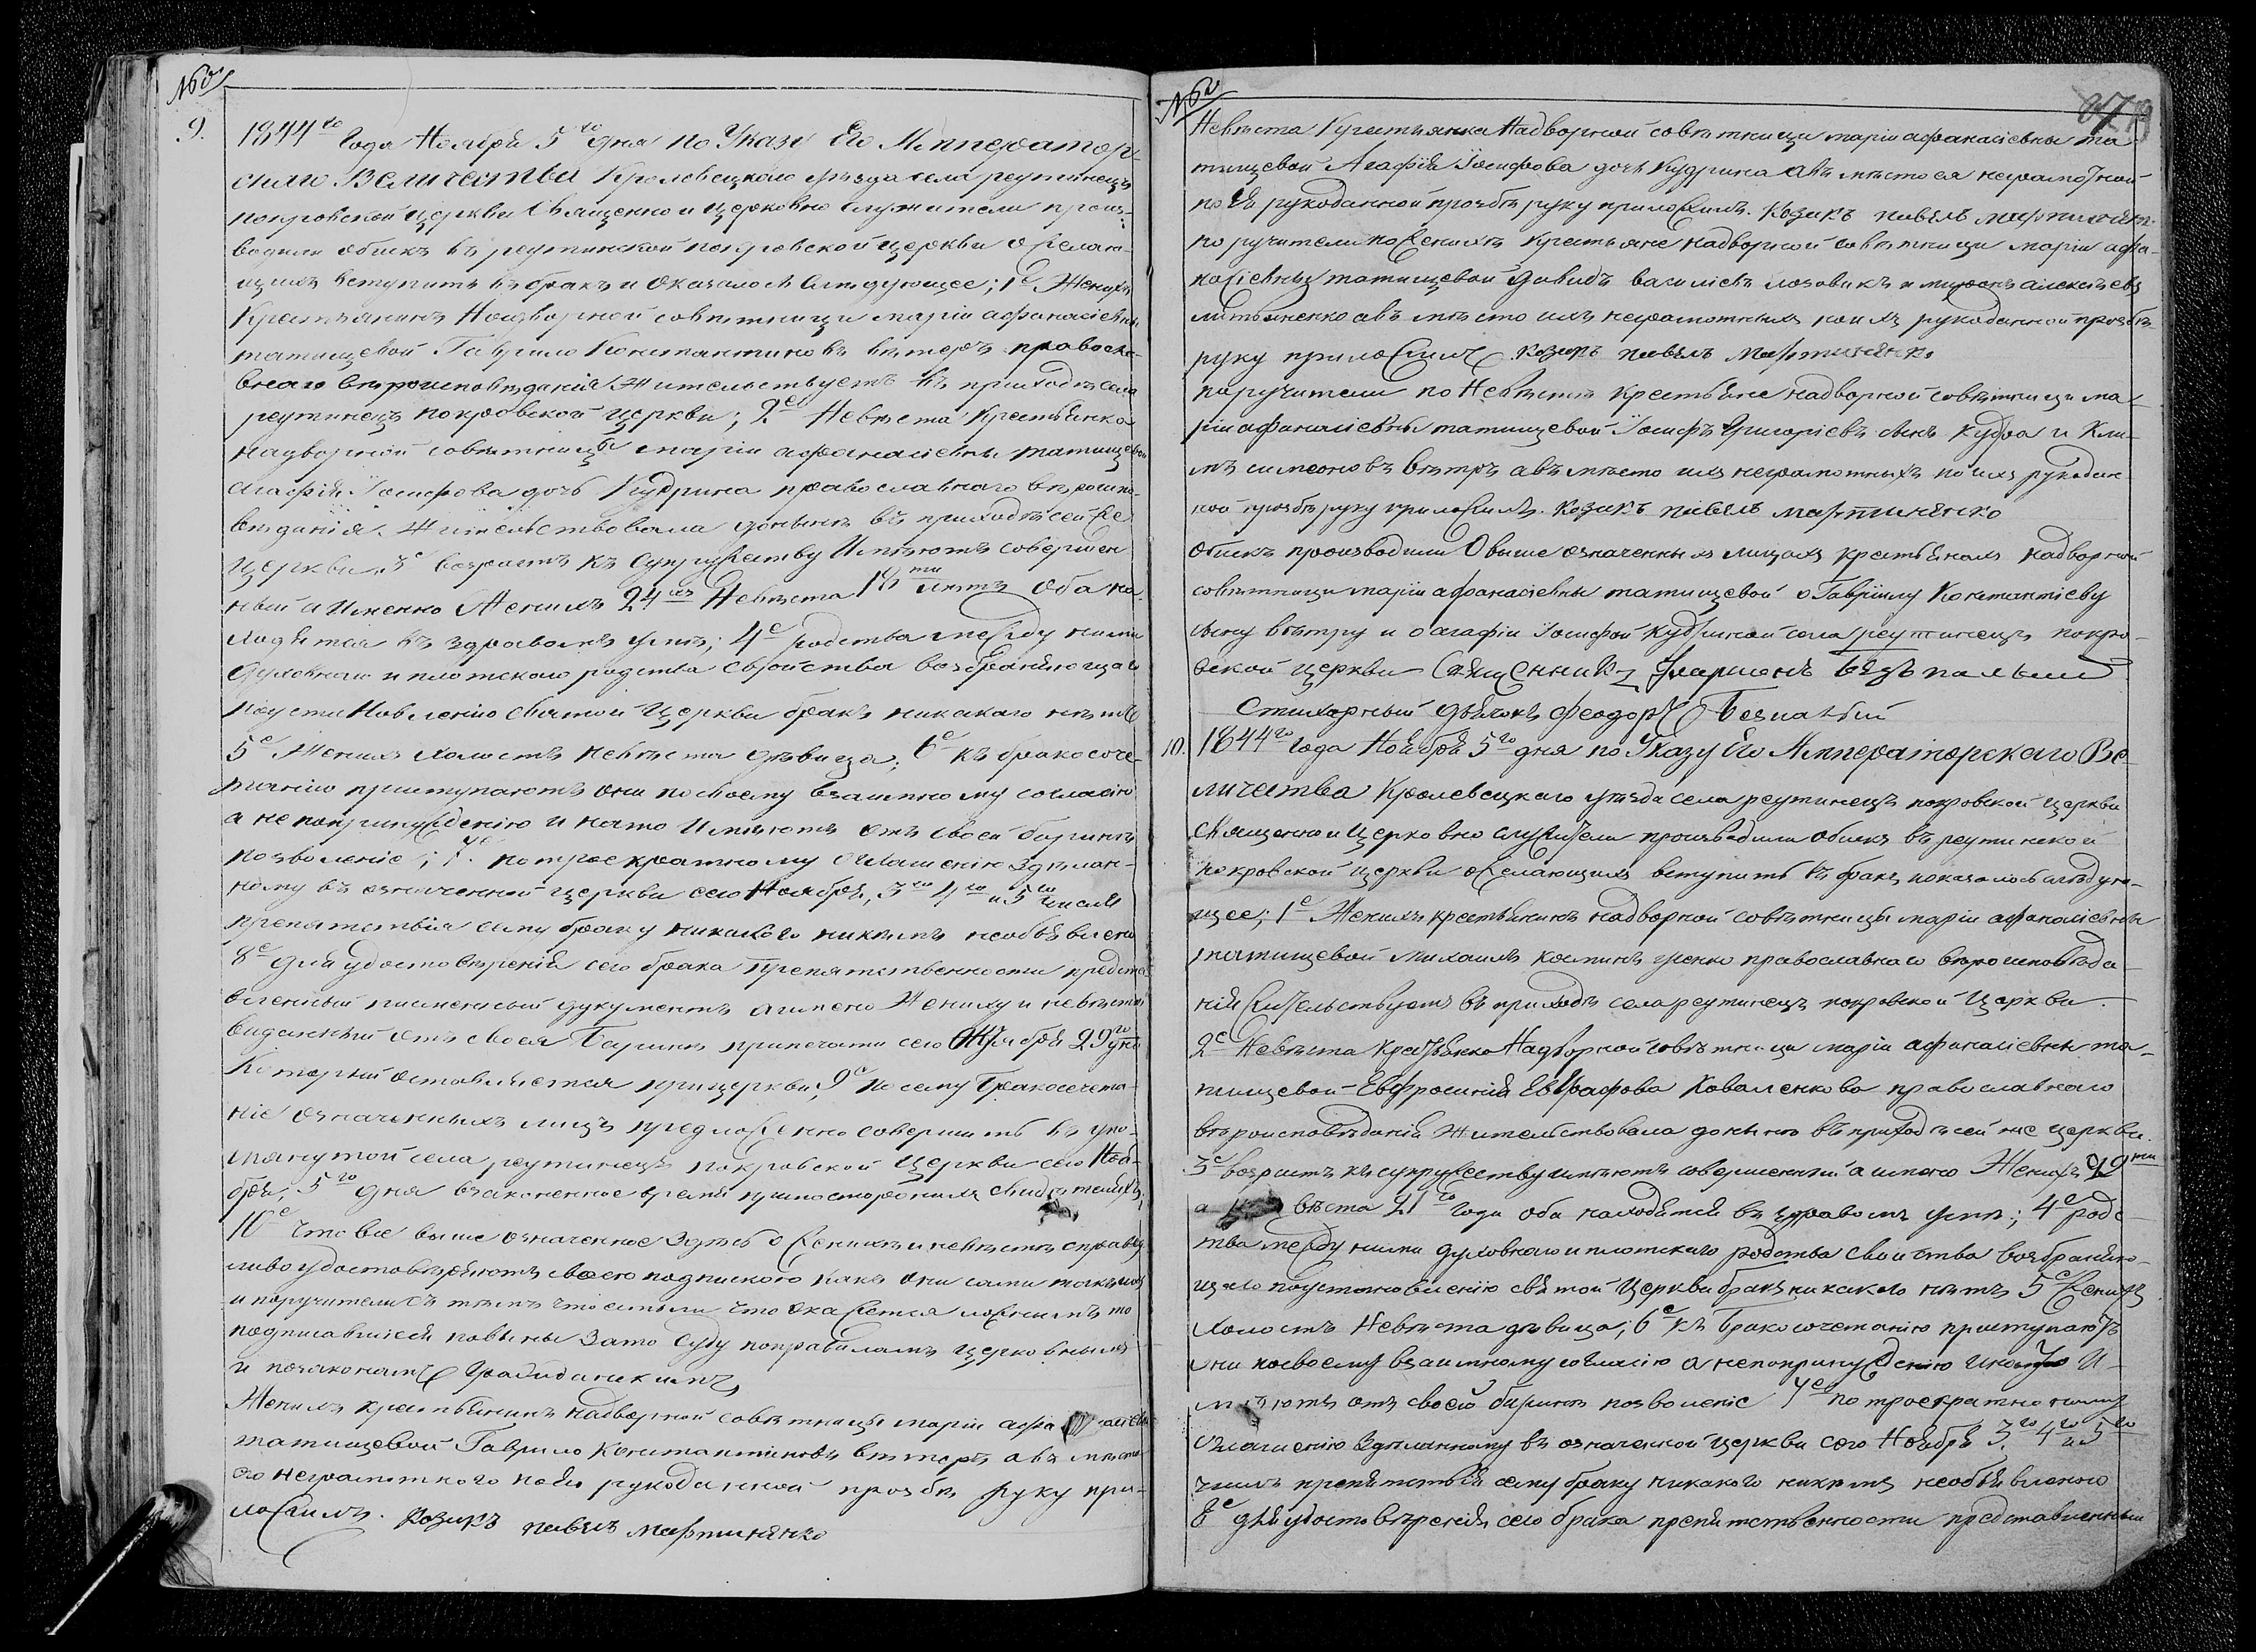 №
9.
1844го Года Ноября 5го дня По Указу Его Император-
скаго Величества Кролевецкаго уѣзда села реутинецъ
покровской церкви Священно и церковно служители произ-
водили обыскъ въ реутинской покровской церкви о желаю-
щихъ вступить въ бракъ и оказалось слѣдующее; 1е Женихъ
Крестьянинъ Надворной совѣтници маріи афанасіевны
татищевой Гаврило Константиновъ вѣтеръ правосла-
внаго вѣроисповѣданія Жительствуетъ въ приходѣ села
реутинецъ покровской церкви; 2е Невѣста Крестьянка
надворной совѣтници маріи афанасіевны татищевой
агафія Іосифова дочь Кудрина православнаго вѣроиспо-
вѣданія. Жительствовала донынѣ въ приходѣ сей же
церкви. 3е возрастъ къ супружеству Имѣютъ совершен
ный а Именно Женихъ 24ехъ Невѣста 18ти лѣтъ Оба на-
ходятся въ здравомъ умѣ; 4е родства между ними
духовнаго и плотскаго родства свойства возбраняющаго
поустановленію святой Церкви бракъ никакаго нѣтъ
5е Женихъ холостъ невѣста дѣвица; 6е къ бракосоче-
танію приступаютъ они по своему взаимному согласію
а непопринужденію и нато Имѣютъ отъ своей барынѣ
позволеніе; 7е. потроекратному оглашенію здѣлан-
ному въ означенной церкви сего Ноября, 3го 4го и 5го числъ
препятствія сему браку никакого никѣмъ необъявлено
8е Для удостовѣренія сего брака Препятственности предста
вленный писменный документъ а именно Жениху и невѣстѣ
виданный отъ своея Барынѣ припечати сего Октября 29го дня
Который оставляется прицеркви, 9е Посему Бракосочета-
ніе означенныхъ лицъ предложенно совершить въ упо-
мянутой села реутинецъ покровской Церкви сего Ноя-
бря; 5го дня взаконенное время припостороннихъ свидѣтеляхъ,
10е Что все выше означенное здѣсь о женихѣ и невѣстѣ справед
ливо удостовѣряютъ своею подпискою какъ они сами такъ и ихъ
и поручители съ тѣмъ что если что окажется ложнымъ то
подписавшіеся повинны Зато Суду поправиламъ церковнымъ
и позаконамъ Гражданскимъ
Женихъ крестьянинъ надворной совѣтници маріи афанасіевны
татищевой Гаврило Константиновъ вѣтеръ авъ мѣсто
его неграмотного поего рукоданной прозбѣ руку при-
ложилъ. Козакъ павелъ мартиненко
№
Невѣста Крестьянка Надворной совѣтници маріи афанасіевны та-
тищевой Агафія Іосифова дочь Кудрина авъ мѣсто ея неграмотной
по Ея рукоданной прозбѣ руку приложилъ. Козакъ павелъ мартиненко
поручители поженихѣ крестьяне надворной совѣтници маріи афа-
насіевны татищевой давидъ василіевъ лозовикъ и алексѣевъ
литвиненко авъ мѣсто ихъ неграмотныхъ поихъ рукоданной прозбѣ
руку приложилъ козакъ павелъ мартиненко
поручители по Невѣстѣ крестьяне надворной совѣтници ма-
ріи афанасіевны татищевой Іосифъ Григоріевъ сынъ Кудра и Кли-
мъ симеоновъ вѣтръ авъ мѣсто ихъ неграмотныхъ по ихъ рукодан
ной прозбѣ руку приложилъ. козакъ павелъ мартиненко
Обискъ производили О выше означенныхъ лицахъ крестьянахъ надворной
совѣтници маріи афанасіевны татищевой о Гавріилу Константіеву
сыну вѣтру и о агафіи Іосифой Кудриной села реутинецъ покро-
вской церкви Священникъ Иларионъ Безпалый
Стихарный дьячокъ Феодоръ Безпалый
10. 1844го года Ноября 5го дня по Указу Его Императорскаго Ве-
личества Кролевецкаго уѣзда села реутинецъ покровской церкви
священно и Церковно служители производили обискъ въ реутинской
покровской церкви ожелающихъ вступить въ бракъ и оказалось слѣдую-
щее; 1е Женихъ крестьянинъ надворной совѣтницы маріи афанасіевны
татищевой михаилъ православнаго вѣроисповѣда-
нія жительствуетъ въ приходѣ села реутинецъ покровской Церкви.
2е Невѣста Крестьянка Надворной совѣтници маріи афанасіевны та-
тищевой Евфросинія Евграфова Коваленкова православнаго
вѣроисповѣданія Жительствовала донынѣ въ приходѣ сей же церкви.
3е возрастъ къ супружеству имѣютъ совершенный а имено Женихъ 29ти
а Невѣста 21го года оба находятся въ здравомъ умѣ; 4е родс-
тва между ними духовнаго и плотскаго родства свойства возбраняю-
щаго поустановленію святой Церкви бракъ никакого нѣтъ 5е Женихъ
холостъ Невѣста дѣвица; 6е къ Бракосочетанію приступаютъ
они посвоему взаимному согласію а непопринужденію и нато И-
мѣютъ отъ своей барынѣ позволеніе 7е по троекратно
оглашенію здѣланному въ означеной церкви сего Ноября 3го 4го и 5го
числъ препятствія сему браку никакого никѣмъ необъявленого
8е для удостовѣренія сего брака препятственности представленный